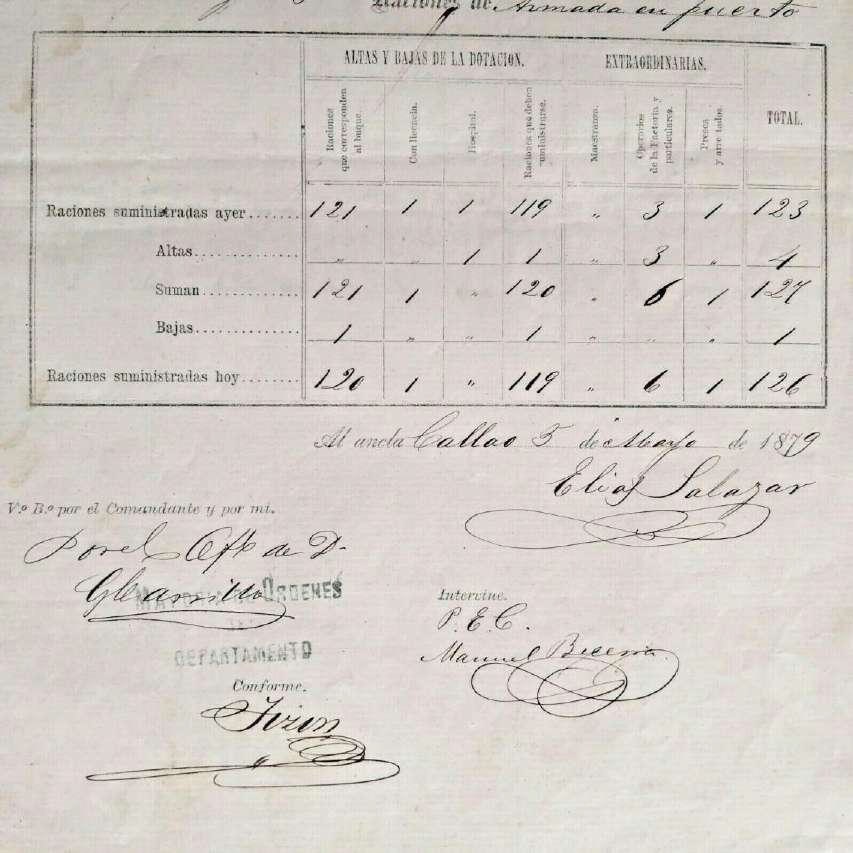 Raciones de Armada en puerto
ALTAS Y BAJAS DE LA DOTACION. EXTRAORDINARIAS. TOTAL.
Raciones que corresponden al buque. Con licencia. Hospital. Raciones que deben suministrarse. Maestranza. Operarios de la Factoria y particulares. Presos y arrestados.
Raciones suministradas ayer....... 121 1 1 119 " 3 1 123
Altas.............. " " 1 1 " 3 " 4
Suman............. 121 1 " 120 " 6 1 127
Bajas.............. 1 " " 1 " " " 1
Raciones suministradas hoy........ 120 1 " 119 " 6 1 126
Al ancla Callao 5 de Mayo de 1879
Elias Salazar
V.o B.o por el Comandante y por mi.
Por el Ofl. de D.
MAYORIA DE ORDENES
DEL
DEPARTAMENTO
Intervine.
P. E. C.
Manuel
Conforme.